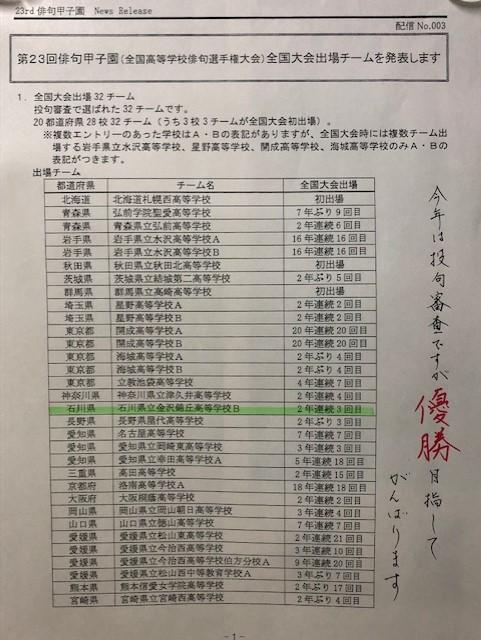 23rd 俳句甲子園 News Release
配信 No.003
第23回俳句甲子園(全国高等学校俳句選手権大会)全国大会出場チームを発表します
1. 全国大会出場32チーム
投句審査で選ばれた32チームです。
20都道府県28校32チーム(うち3校3チームが全国大会初出場)。
※複数エントリーのあった学校はA・Bの表記がありますが、全国大会時には複数チーム出
場する岩手県立水沢高等学校、星野高等学校、開成高等学校、海城高等学校のみA・Bの
表記がつきます。
出場チーム
都道府県 チーム名 全国大会出場
北海道 北海道札幌西高等学校 初出場
青森県 弘前学院聖愛高等学校 7年ぶり9回目
青森県 青森県立弘前高等学校 2年連続6回目
岩手県 岩手県立水沢高等学校A 16年連続16回目
岩手県 岩手県立水沢高等学校B 16年連続16回目
秋田県 秋田県立秋田北高等学校 初出場
茨城県 茨城県立結城第二高等学校 2年ぶり5回目
群馬県 群馬県立高崎高等学校 初出場
埼玉県 星野高等学校A 2年連続2回目
埼玉県 星野高等学校B 2年連続2回目
東京都 開成高等学校A 20年連続20回目
東京都 開成高等学校B 20年連続20回目
東京都 海城高等学校A 2年ぶり4回目
東京都 海城高等学校B 2年ぶり4回目
東京都 立教池袋高等学校 4年連続7回目
神奈川県 神奈川県立津久井高等学校 2年連続2回目
石川県 石川県立金沢錦丘高等学校B 2年連続3回目
長野県 長野県屋代高等学校 2年ぶり3回目
愛知県 名古屋高等学校 7年連続7回目
愛知県 愛知県立岡崎東高等学校 3年連続3回目
愛知県 愛知県立幸田高等学校A 5年連続18回目
三重県 高田高等学校 2年連続15回目
京都府 洛南高等学校A 18年連続18回目
大阪府 大阪桐蔭高等学校 2年連続2回目
岡山県 岡山県立岡山朝日高等学校 3年連続4回目
山口県 山口県立徳山高等学校 7年連続7回目
愛媛県 愛媛県立松山東高等学校 2年連続21回目
愛媛県 愛媛県立今治西高等学校 3年連続10回目
愛媛県 愛媛県立今治西高等学校伯方分校A 9年連続20回目
愛媛県 愛媛県立松山西中等教育学校A 3年ぶり7回目
熊本県 熊本信愛女学院高等学校 2年ぶり17回目
宮崎県 宮崎県立宮崎西高等学校 2年ぶり4回目
今年は投句審査ですが優勝目指して
がんばります
-1-